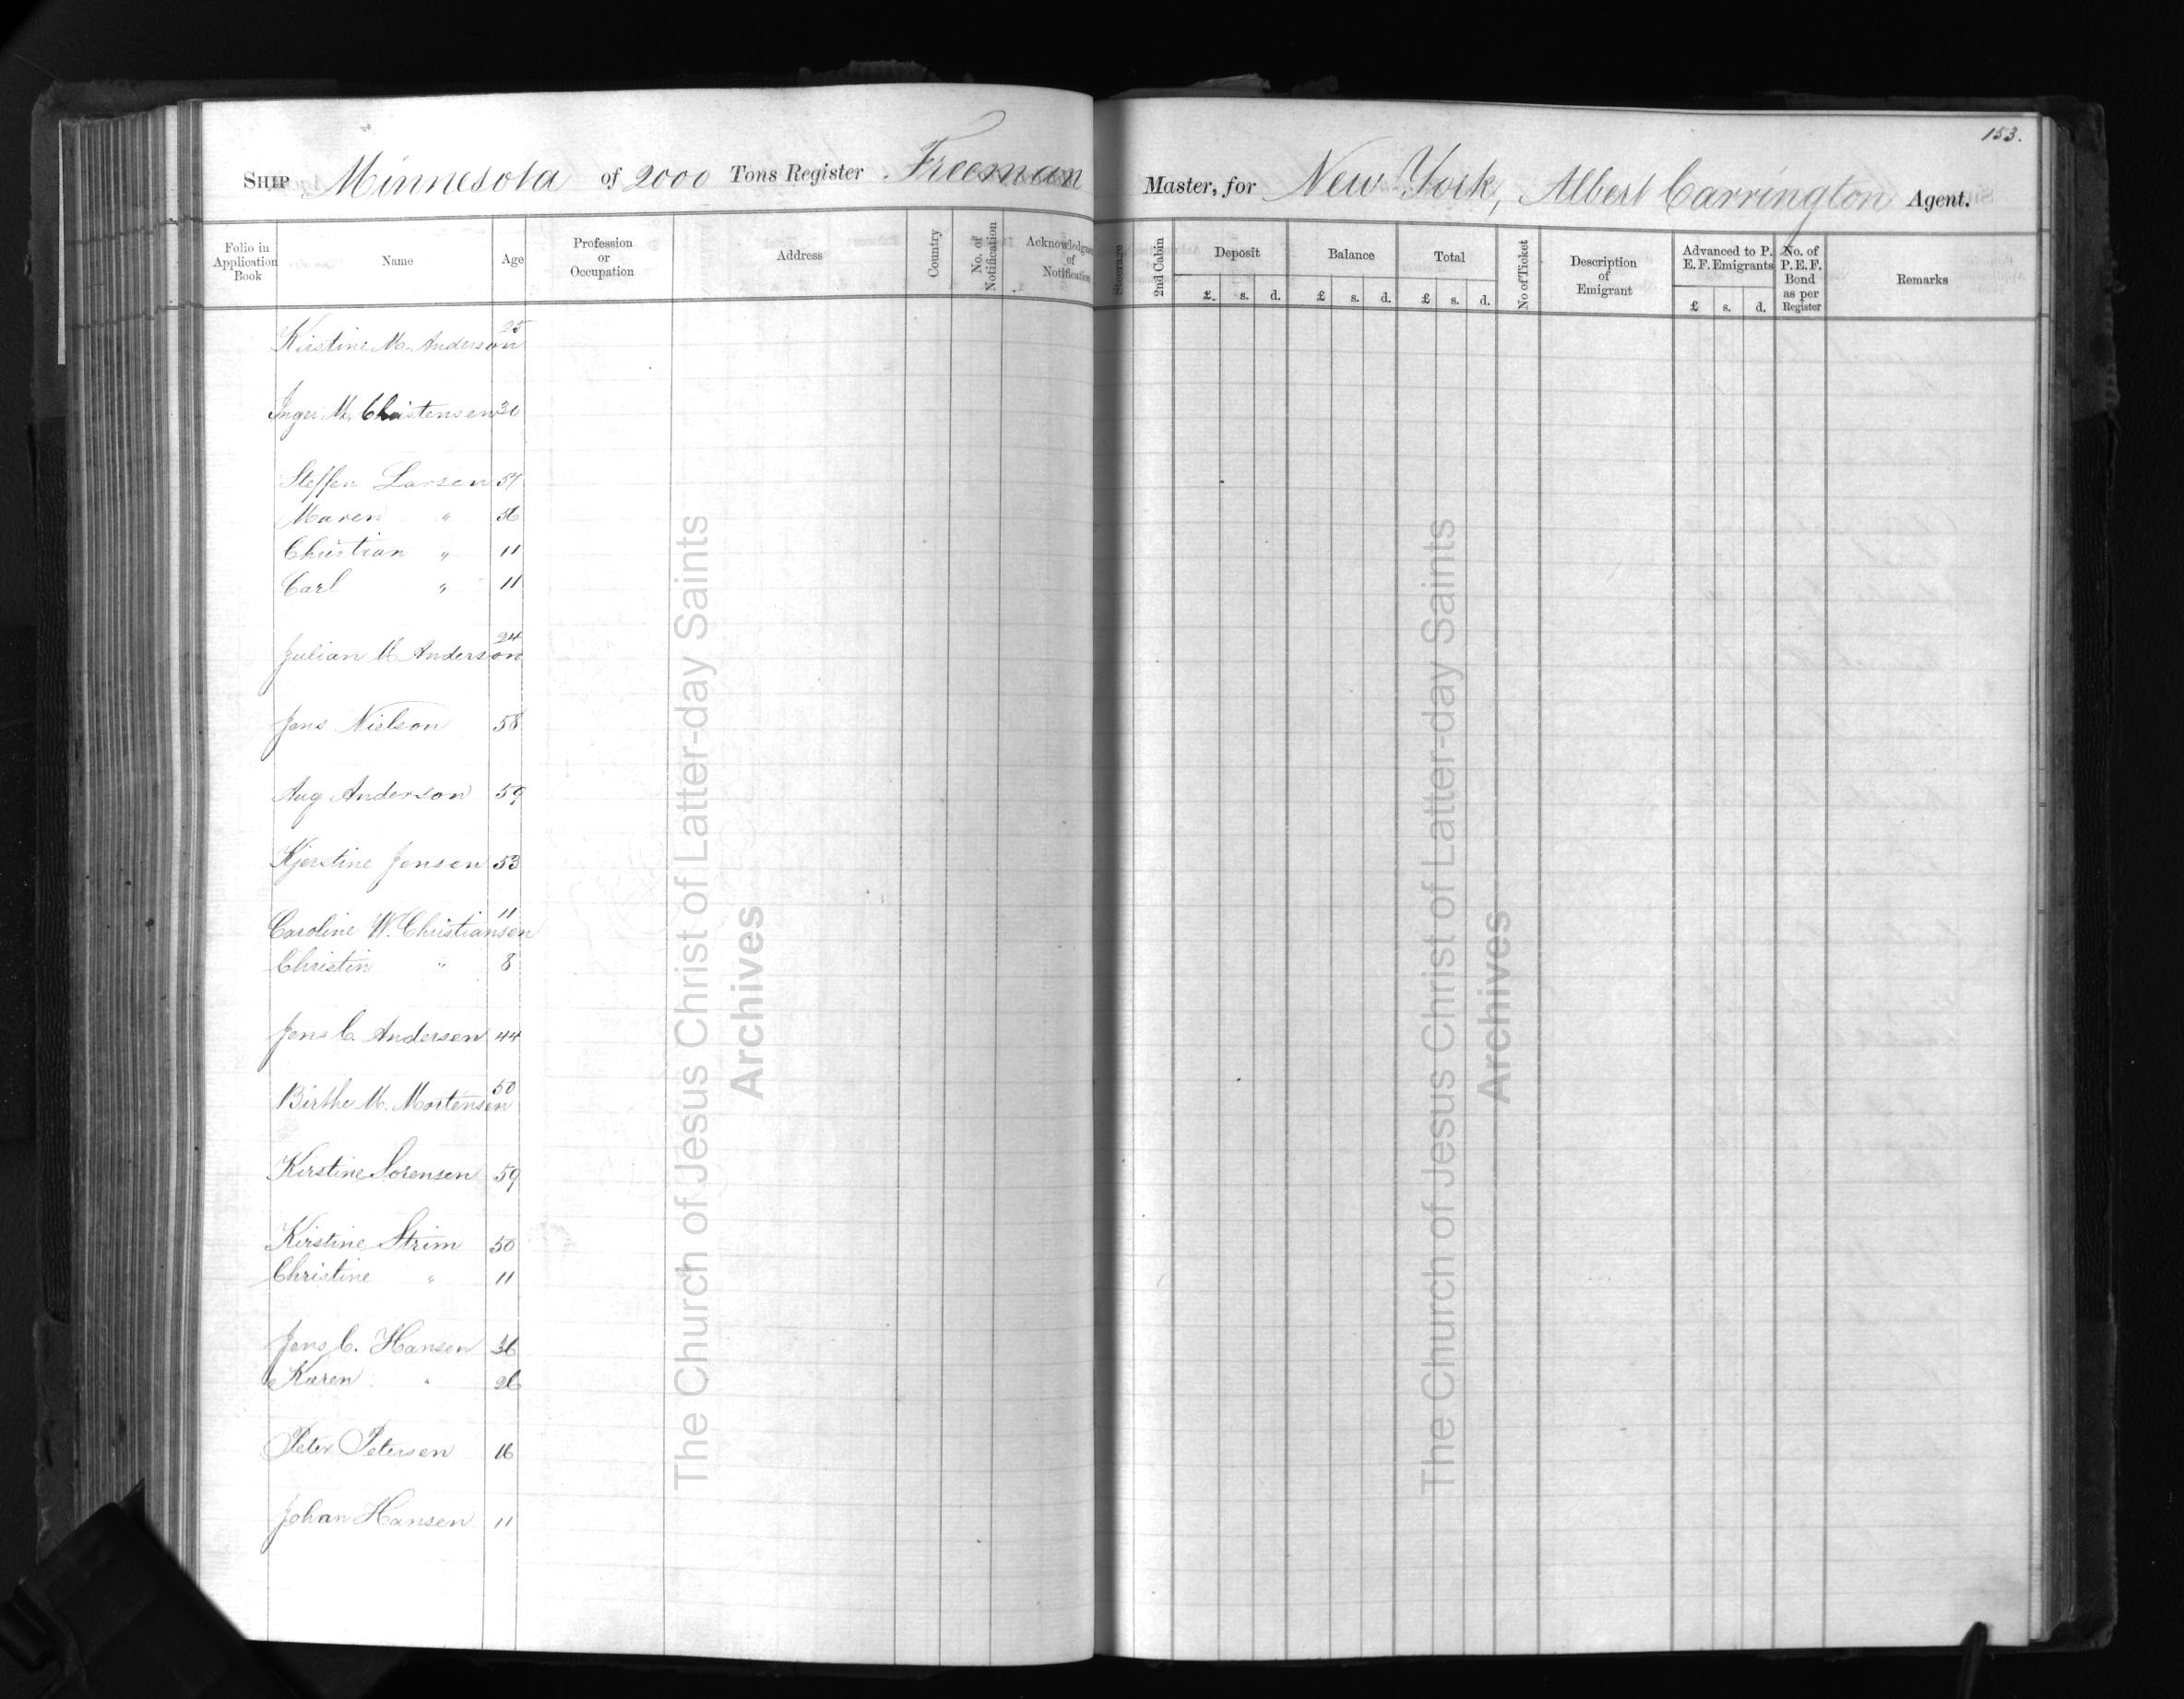 153.
SHIP Minnesota of 2000 Tons Register Freeman Master, for New York, Albert Carrington Agent.
Folio in Application Book Name Age Profession or Occupation Address Country No. of Notification Acknowledgment of Notification Steerage 2nd Cabin Deposit £ s. d. Balance £ s. d. Total £ s. d. No of Ticket Description of Emigrant Advanced to P. E. F. Emigrants £ s. d. No. of P. E. F. Bond as per Register Remarks
Kirstine M. Anderson 25
Inger M. Christensen 30
Steffen Larsen 57
Maren " 56
Christian " 11
Carl " 11
Julian M Anderson 24
Jens Nielson 58
Aug Anderson 59
Kjerstine Jensen 53
Caroline W. Christiansen 11
Christin " 8
Jens C. Andersen 44
Birthe M. Mortensen 50
Kirstine Sorensen 59
Kirstine Strim 50
Christine " 11
Jens C. Hansen 36
Karen " 26
Peter Petersen 16
Johan Hansen 11
The Church of Jesus Christ of Latter-day Saints
Archives
The Church of Jesus Christ of Latter-day Saints
Archives